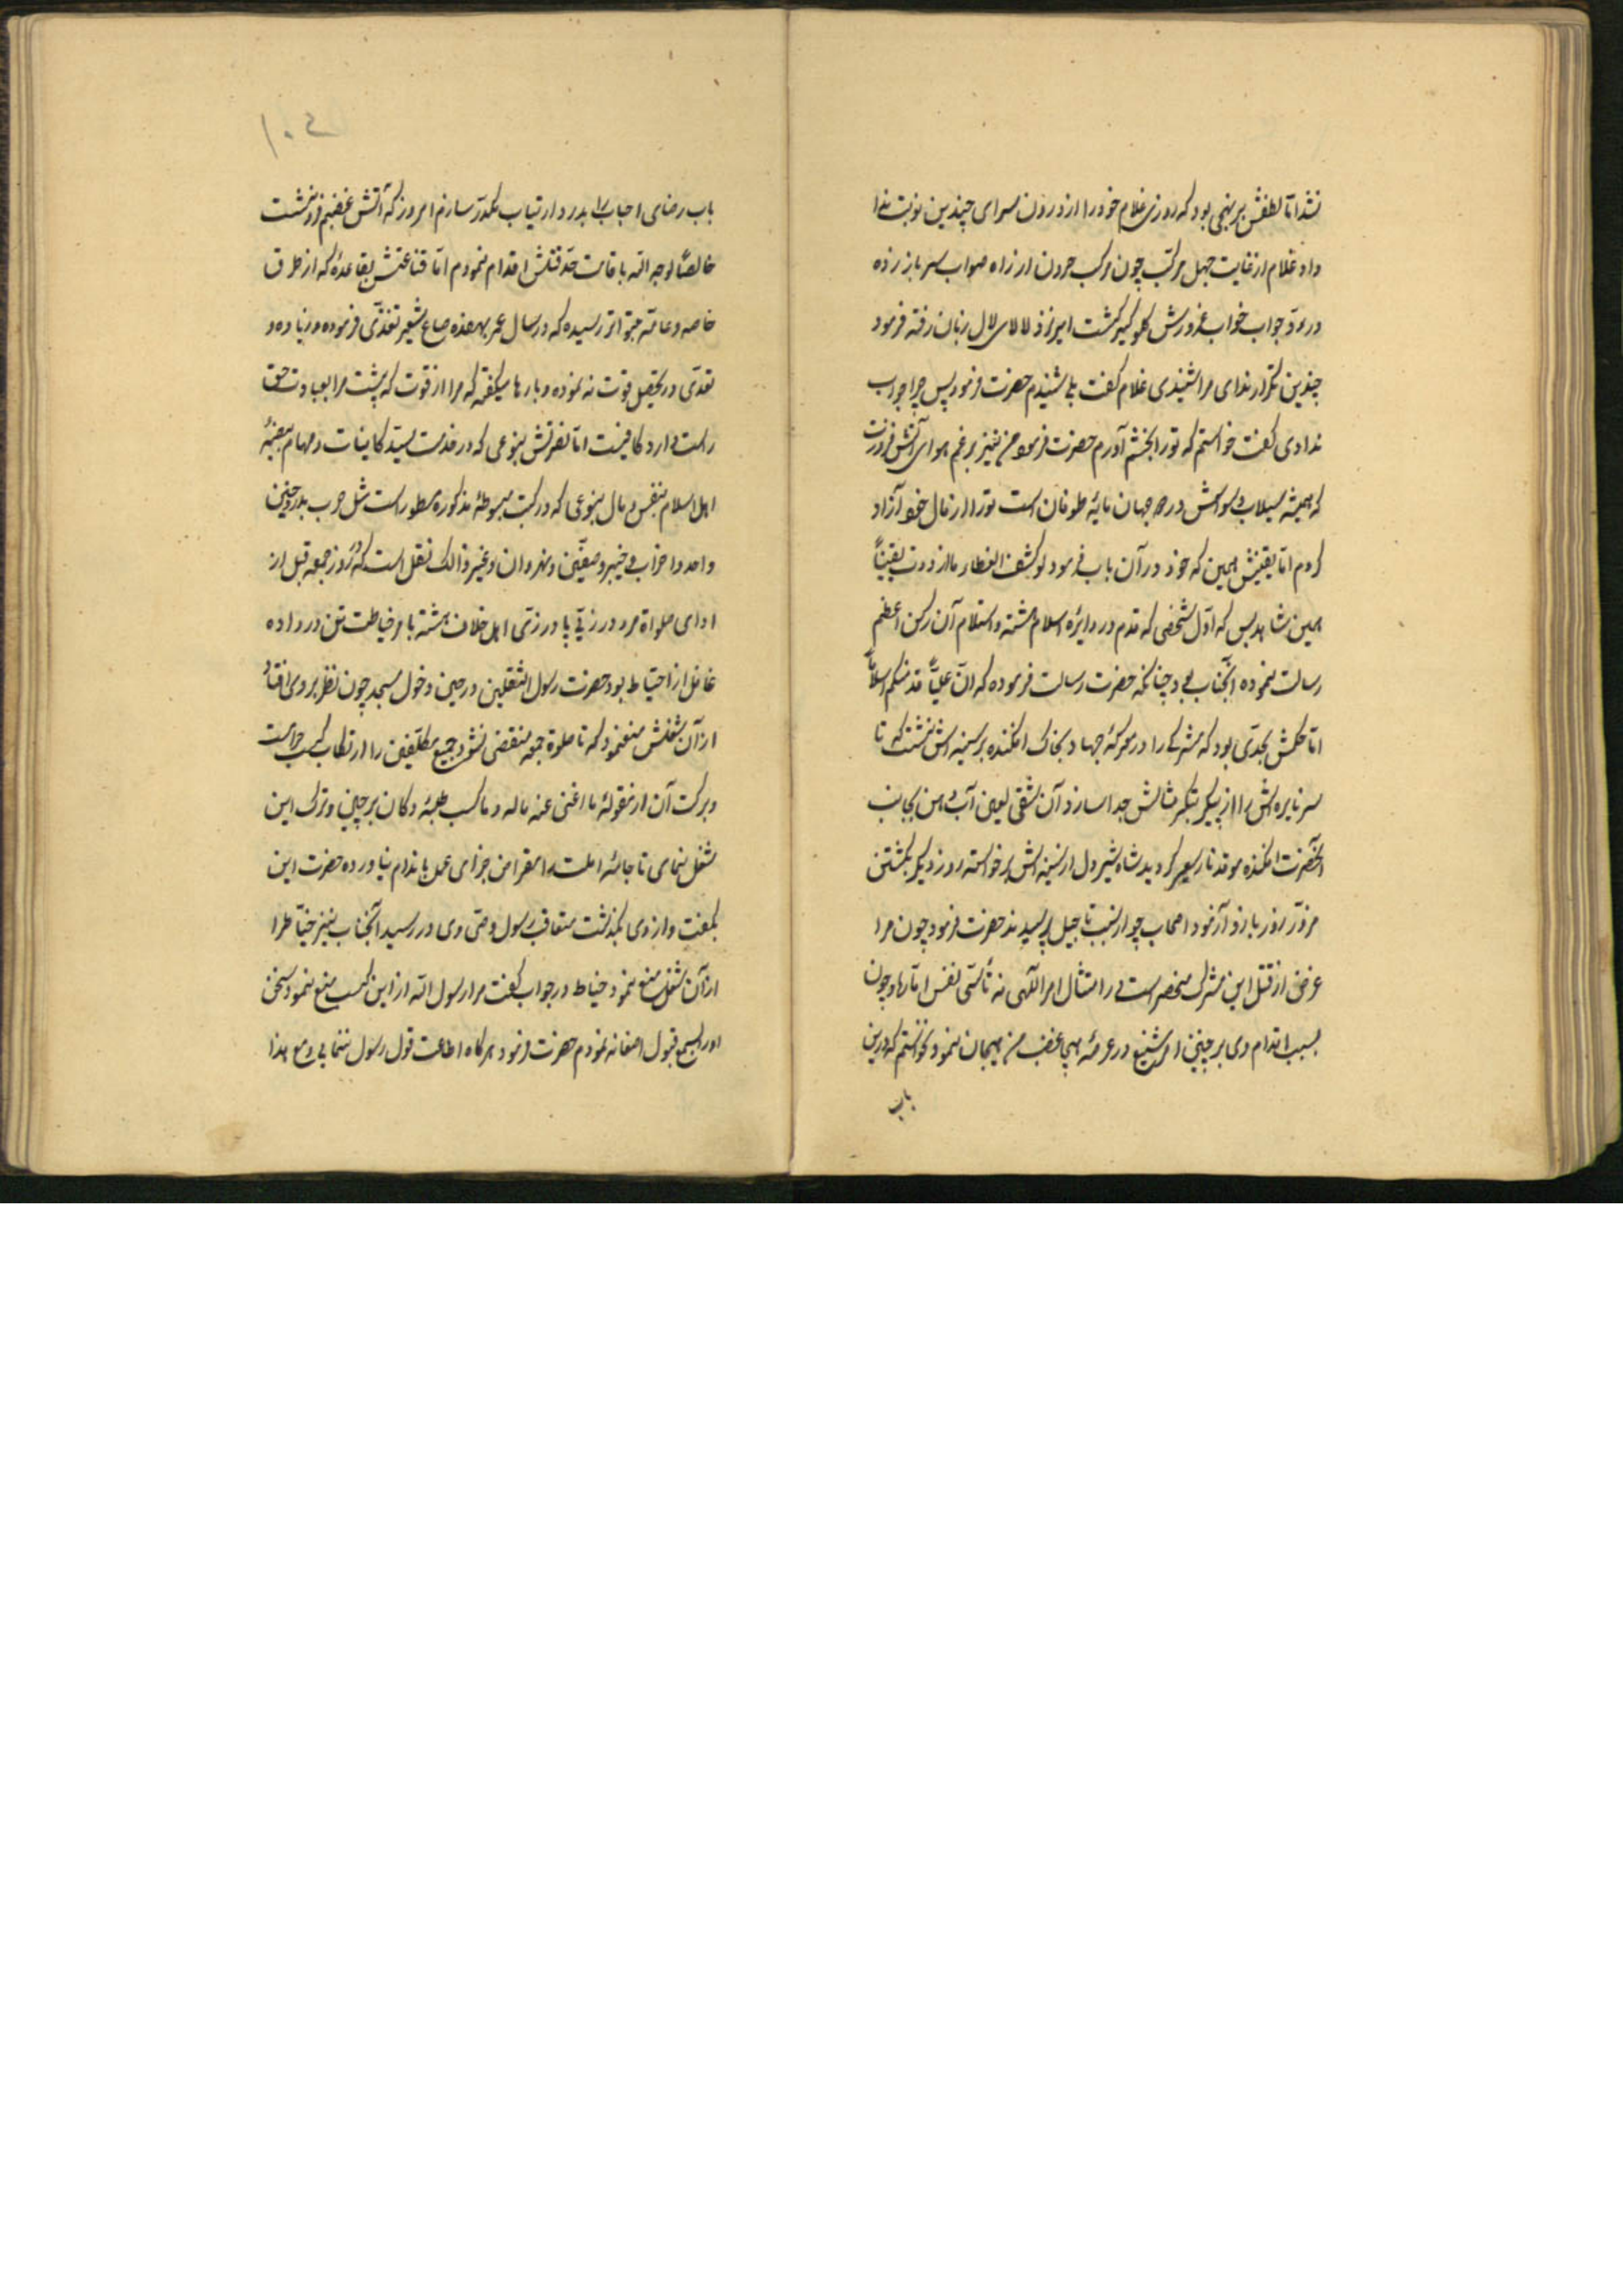 نشد اما لطفش بر نهجی بود که روزی غلام خود را از درون سرای چندین نوبت ندا
داد غلام از غایت جهل مرکب چون مرکب حرون از راه صواب سر باز زده
در رد جواب خواب غرورش گلوگیر گشت امیر نزد لالای لال زبان رفته فرمود
چندین تکرار ندای مرا شنیدی غلام گفت بلی شنیدم حضرت فرمود پس چرا جواب
ندادی گفت خواستم که تو را بخشم آورم حضرت فرمود من نیز برغم هوای آتش فروزت
که همیشه سیلاب وسواسش در جهان مایه طوفان است تو را از مال خود آزاد
کردم اما یقینش همین که خود در آن باب فرمود لو کشف الغطاء ما ازددت یقیناً
همین شاهد بس که اول شخصی که قدم در دایره اسلام هشته و استلام آن رکن اعظم
رسالت نموده آنجناب بود چنانکه حضرت رسالت فرموده که ان علیاً اقدمکم اسلاماً
اما حلمش بحدی بود که مشرکی را در معرکه جهاد بخاک افکنده بر سینه اش نشست که تا
سر نایره اش را از پیکر بتگر مثالش جدا سازد آن شقی لعین آب دهن بجانب
آنحضرت افکنده موقد نار سعیر گردید شاه شیر دل از سینه اش برخواسته روز دیگر بکشتن
مزور زور بازو آزمود اصحاب چو از سبب تاجیل پرسیدند حضرت فرمود چون مرا
غرض از قتل این مشرک منحصر است در امتثال امر الهی نه تأسی نفس اماره و چون
بسبب اقدام وی بر چنین امر شنیع در عرصه هیجا غضب من هیجان نمود نخواستم که درین
باب
۱۰۴
باب رضای احباب را بدرد ارتیاب مکدر سازم امروز که آتش غضبم فرو نشست
خالصاً لوجه الله باقامت حد قتلش اقدام نمودم اما قناعتش بقاعده که از طرق
خاصه و عامه بتواتر رسیده که در سال عمر بهفده صاع شعیر تغذی فرموده و زیاده و
تعدی در تحصیل قوت نه نموده و بارها میگفته که مرا از قوت که پشت مرا بعبادت حق
راست دارد کافیست اما نصرتش بنوعی که در خدمت سید کاینات و مهام بیضه
اهل اسلام بنفس و مال بنوعی که در کتب مبسوطه مذکوره مسطور است مثل حرب بدر و حنین
و احد و احزاب و خیبر و صفین و نهروان و غیر ذالک نقل است که در روز جمعه قبل از
ادای صلواة مرد درزیی پا در زی اهل خلاف هشته بامر خیاطت تن در داده
غافل از احتیاط بود حضرت رسول الثقلین در حین دخول مسجد چون نظر بر وی افتاد
از آن شغلش منع نمود که تا صلوة جمعه منقضی نشود جمیع مکلفین را ارتکاب کسب حرامست
و برکت آن از مقوله ما اغنی عنه ماله و ما کسب طبه دکان بر چین و ترک این
شغل نمای تا جامه املت را مقراض جزای عمل باندام نیاورده حضرت این
بگفت و از وی بگذشت متعاقب رسول وصی وی در رسید آنجناب نیز خیاط را
از آن شغل منع نمود خیاط در جواب گفت مرا رسول الله ازین کسب منع نمود سخن
او را بسمع قبول اصغا نه نمودم حضرت فرمود هرگاه اطاعت قول رسول ننمایی و مع هذا